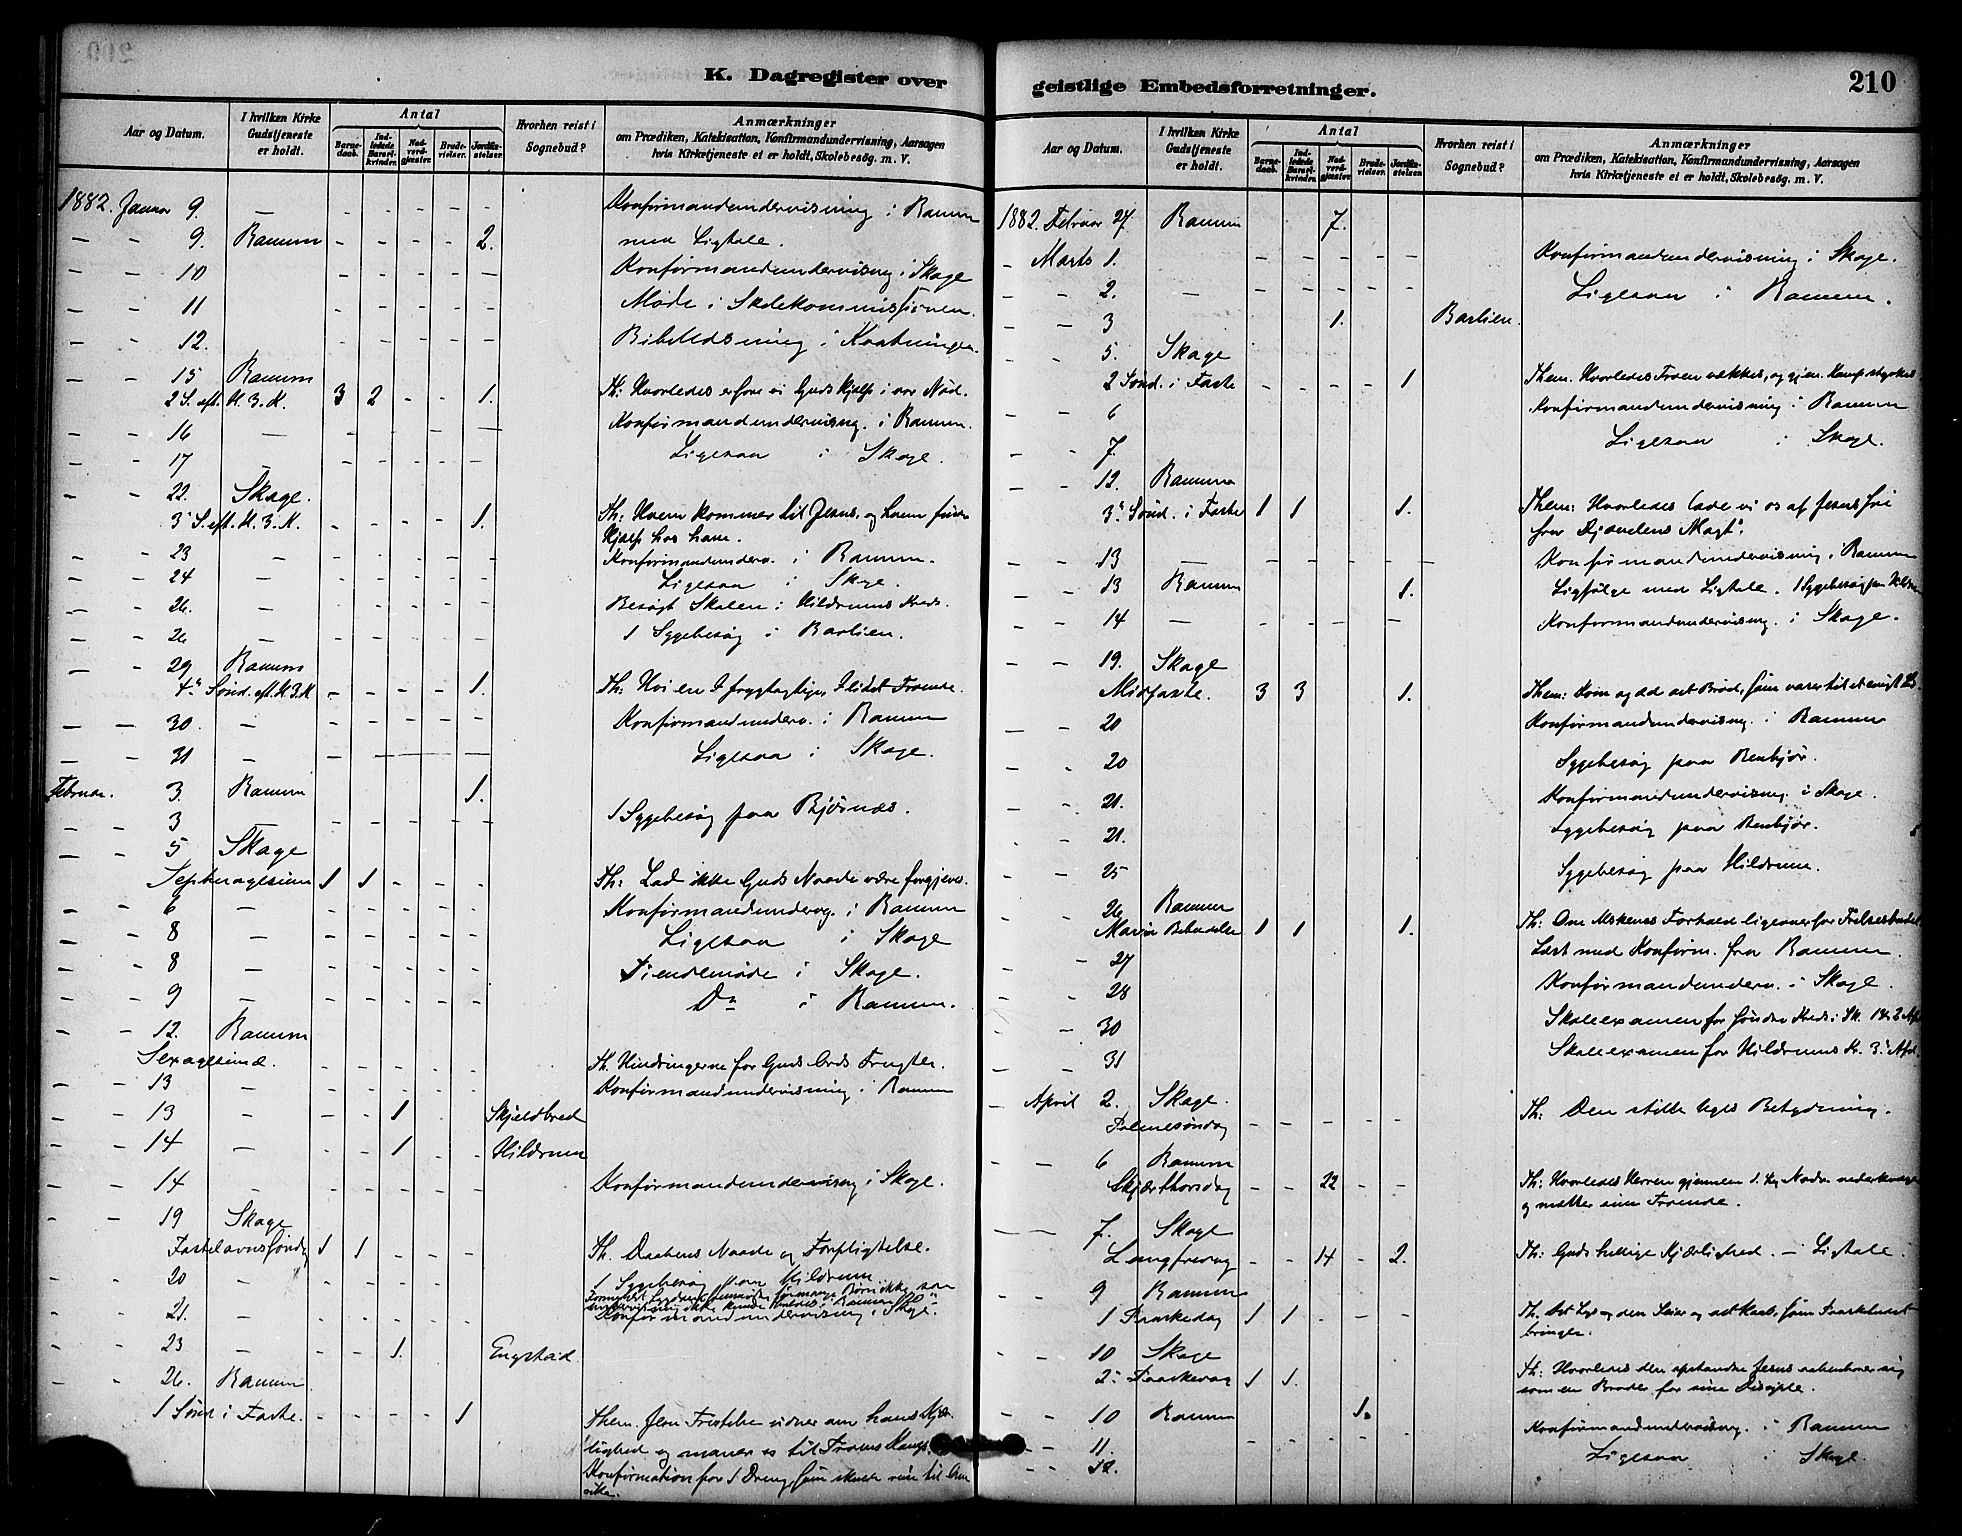 K. Dagregister over
Aar og Datum. I hvilken Kirke Gudstjeneste er holdt. Antal Barnedaab. Indledede Barselkvinder. Nadverdgjæster. Brudevielser. Jordfæstelser. Hvorhen reist i Sognebud? Anmærkninger om Prædiken, Katekisation, Konfirmandundervisning, Aarsagen hvis Kirketjeneste ei er holdt, Skolebesög. m. V.
1882. Januar 9. — - - - - - Konfirmandundervisning i Ranum
— - 9. Ranum - - - - 2. med Ligtale.
— - 10 - - - - — Konfirmandundervisng i Skage
— - 11 - - - - - Møde i Skolekommissionen.
— - 12. - - - - - Bibellæsning i
— - 15 Ranum
2 S. eft. H. 3. K. 3 2 - - 1. Th: Hvorledes erfare vi Guds Hjælp i vor Nød.
— - 16 — Konfirmandundervisng. i Ranum.
— - 17 — Ligesaa i Skage.
— - 22. Skage.
3' S. eft. H. 3. K. - - - - 1. Th: Hvem kommer til Jesus, og hvem finder
Hjælp hos ham.
— - 23 - Konfirmanderv. i Ranum.
— - 24 — Ligesaa i Skage.
— - 26. — Besøgt Skolen i Hildrems Kreds.
— - 26 — 1 Sygebesøg i Barlien.
— - 29 Ranum
4' Sönd. eft. H. 3. K - - - - 1. Th: Hvi ere I frygtagtige, I lidet Troende.
— - 30. — Konfirmandunderv. i Ranum
— - 31 - Ligesaa i Skage.
Februar. 3. Ranum 1.
— - 3 — 1 Sygebesøg paa Bjørnæs.
— - 5 Skage
Septuagesima 1 1 - - - Th: Lad ikke Guds Naade være forgjeves.
— - 6 — Konfirmandunderv. i Ranum
— - 8 — Ligesaa i Skage
— - 8 — Tiendemøde i Skage.
— - 9 — Do i Ranum.
— - 12. Ranum
Sexagesimæ. - - - - - Th. Hindringerne for Guds Ords Frugter.
— - 13 - Konfirmandundervisning i Ranum
— - 13 - - - 1 Skjeldbred
— - 14 - - - 1 - - Hildrem
— - 14 - Konfirmandundervisng i Skage.
— - 19 Skage
Fastelavnssönd. 1 1 - - - Th. Daabens Naade og Forpligtelse.
- - 20 - 1 Sygebesøg paa Hildrem.
- - 21. - Konfirmandundervisning i Skage.
- - 23 — - - 1. Engstad.
- - 26. Ranum
1 Sönd i Faste. - - - - 1 Them. Jesu Fristelse vidner om hans Kjær-
lighed og maner os til Troens Kamp.
Konfirmation for 1 Dreng, som skulde reise til Ame-
rika.
geistlige Embedsforretninger.
210
Aar og Datum. I hvilken Kirke Gudstjeneste er holdt. Antal Barnedaab. Indledede Barselkvinder. Nadverdgjæster. Brudevielser. Jordfæstelser. Hvorhen reist i Sognebud? Anmærkninger om Prædiken, Katekisation, Konfirmandundervisning, Aarsagen hvis Kirketjeneste ei er holdt, Skolebesög. m. V.
1882. Februar 27. Ranum 7.
- Marts 1. - - - - - Konfirmandundervisning i Skage.
— - 2. — - - - - - Ligesaa i Ranum.
— - 3 1. Barlien.
- - 5. Skage
2 Sönd. i Faste - - - - 1 Them. Hvorledes Troen vækkes, og gjen. Kamp styrkes
— - 6 Konfirmandundervisning i Ranum
— - 7. Ligesaa i Skage.
— - 12. Ranum
3' Sönd. i Faste 1 1 1. Them: Hvorledes lade vi os af Jesus fri
fra Djævelens Magt.
— - 13 — Konfirmandundervisning i Ranum
— - 13 Ranum 1. Ligfølge med Ligtale. 1 Sygebesøg paa
— - 14 — - - - - Konfirmandundervisng. i Skage.
- - 19. Skage
Midfaste. 3 3 1. Them: Kom og æd det Brød, som varer til et evigt Liv.
- - 20 Konfirmandundervisng. i Ranum
- - 20 Sygebesøg paa Renbjør.
- - 21. Konfirmandundervisng. i Skage.
- - 21. Sygebesøg paa Renbjør.
- - 25 Sygebesøg paa Hildrem.
- - 26 Ranum
Mariæ Bebudelse 1 1 1. Th: Om Menskenes Forhold ligeoverfor Frelsesbudsk.
— - 27 Læst med Konfirm. fra Ranum.
— - 28 Konfirmandunderv. i Skage.
— - 30 Skoleexamen for søndre Kreds i Sk. 1 & 2 Afd.
— - 31 Skoleexamen for Hildrems Kr. 3' Afd.
— April 2. Skage.
Palmesøndag - - - - - Th: Den stille Uges Betydning.
— - 6 Ranum
Skjærthorsdag - - 22 - - Th: Hvorledes Herren gjennem d. hlg. Nadv. vederkvæger
og mætter sine Troende.
— - 7. Skage
Langfredag - - 14 - 2. Th: Guds hellige Kjærlighed. — Ligtale.
- - 9 Ranum
1 Paaskedag 1 1 - - - Th. Det Lys og den Seier og det Haab, som Paaskebudsk.
bringer.
- - 10 Skage
2' Paaskedag 1 1. Th: Hvorledes den opstandne Jesus aabenbarer sig
som en Broder for sine Disciple.
- - 10 Ranum 1.
- - 11. - - - - - Konfirmandundervisng. i Ranum
- - 12. Ligesaa i Skage.